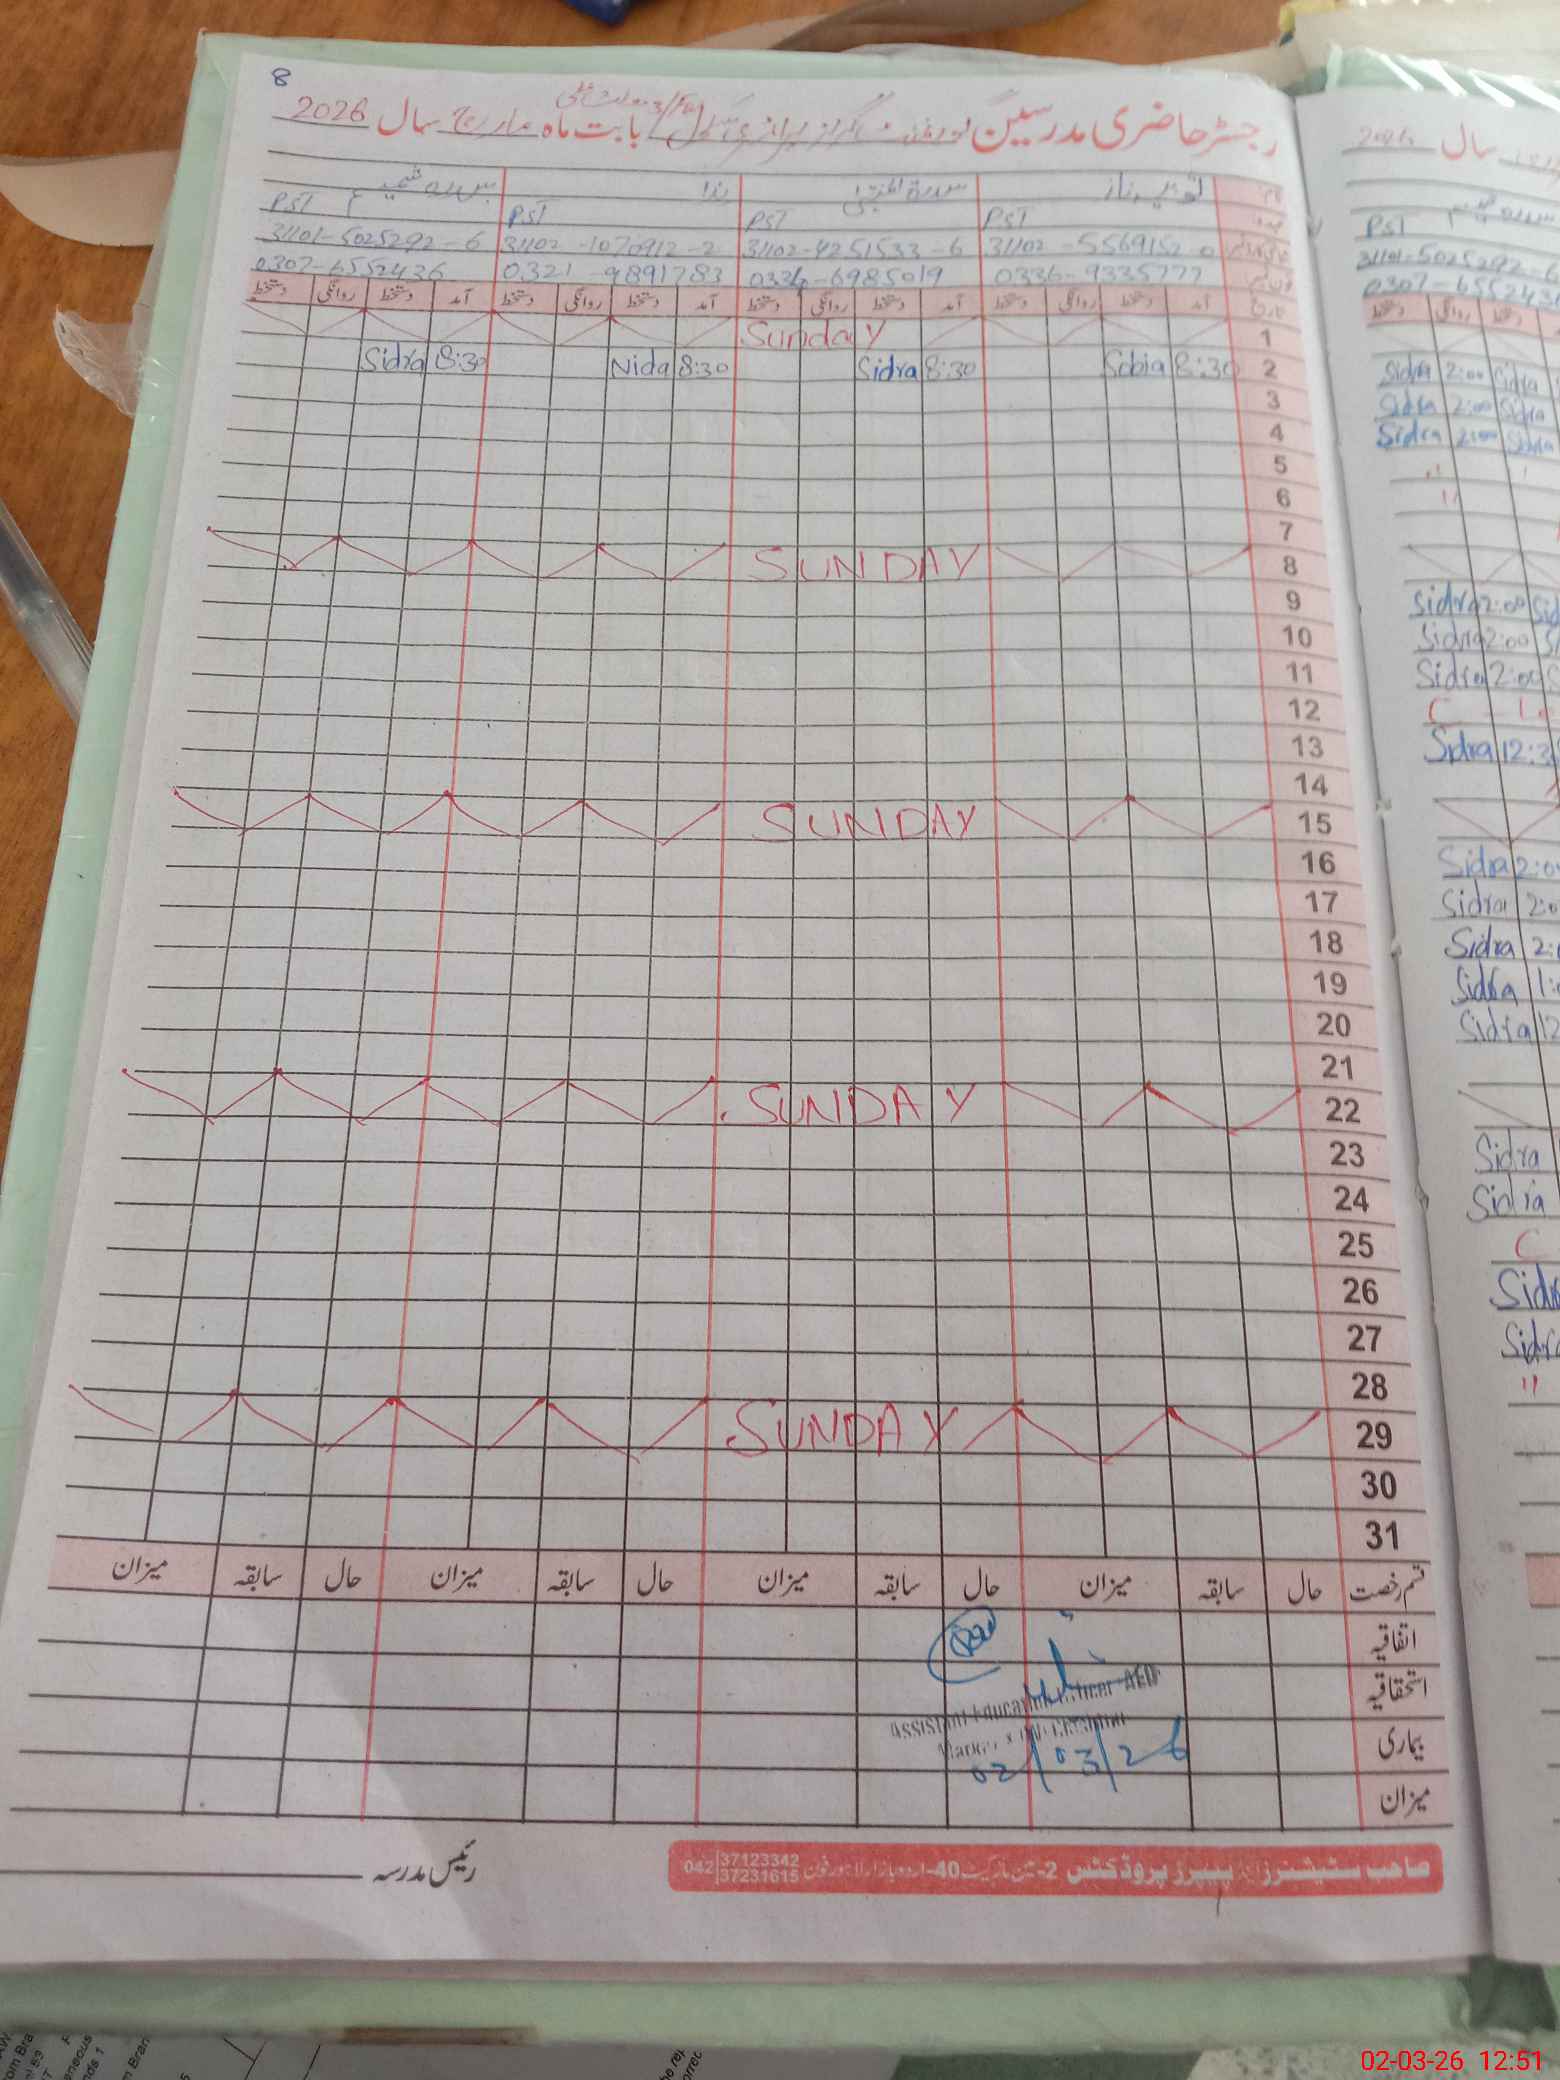 8
رجسٹر حاضری مدرسین گورنمنٹ گرلز پرائمری سکول بابت ماہ مارچ سال 2026
PST PST PST PST
31101-5025292-6 31102-1070912-2 31102-4251533-6 31102-5569152-0
0307-6552436 0321-9891783 0336-6985019 0336-9335777
تاریخ آمد دستخط روانگی دستخط آمد دستخط روانگی دستخط آمد دستخط روانگی دستخط آمد دستخط روانگی دستخط
Sunday 1
Sidra 8:30 Nida 8:30 Sidra 8:30 Sobia 8:30 2
3
4
5
6
7
SUNDAY 8
9
10
11
12
13
14
SUNDAY 15
16
17
18
19
20
21
SUNDAY 22
23
24
25
26
27
28
SUNDAY 29
30
31
قسم رخصت حال سابقہ میزان حال سابقہ میزان حال سابقہ میزان حال سابقہ میزان
اتفاقیہ
استحقاقیہ
بیماری
میزان
Assistant Education Officer AEO
02/03/26
رئیس مدرسہ
صاحب سٹیشنرز اینڈ پیپرز پروڈکٹس 2-مین مارکیٹ 40-اردو بازار لاہور فون 042 37123342 37231615
سال 2026
PST
31101-5025292-6
0307-655243
دستخط روانگی دستخط
Sidra 2:00 Sidra
Sidra 2:00 Sidra
Sidra 2:00 Sidra
Sidra 2:00 Sid
Sidra 2:00 S
Sidra 2:00 S
C
Sidra 12:3
Sidra 2:0
Sidra 2:0
Sidra 2:
Sidra 1:
Sidra 12
Sidra
Sidra
C
Sidr
Sidra
02-03-26 12:51